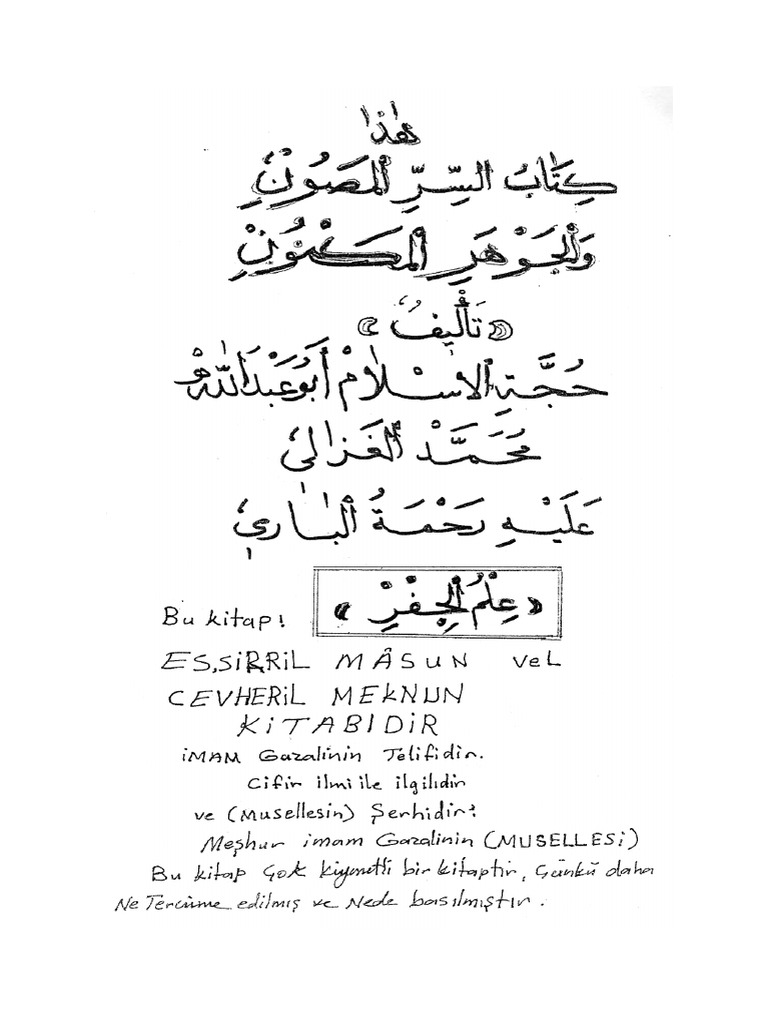 هٰذا
كِتَابُ السِّرِّ المَصَوُنِ
وَالجَوْهَرِ المَكْنُوْنِ
﴿تَأْلِيفُ﴾
حُجَّةِ الاِسْلَامْ أَبُو عَبْدَ اللّٰهْ
مُحَمَّدْ الغَزالِى
عَلَيْهِ رَحْمَةُ البَارِي
﴿عِلْمُ الجِفْرِ﴾
Bu kitap!
ES,SiRRiL MÂSUN VeL
CEVHERiL MEKNUN
KiTABIDIR
iMAM Gazalinin Telifidir.
Cifir ilmi ile ilgilidir
ve (Musellesin) Şerhidir!
Meşhur imam Gazalinin (MUSELLESi)
Bu kitap Çok kiymetli bir kitaptir, Çünkü daha
Ne Tercüme edilmiş ve Nede basılmıştır.